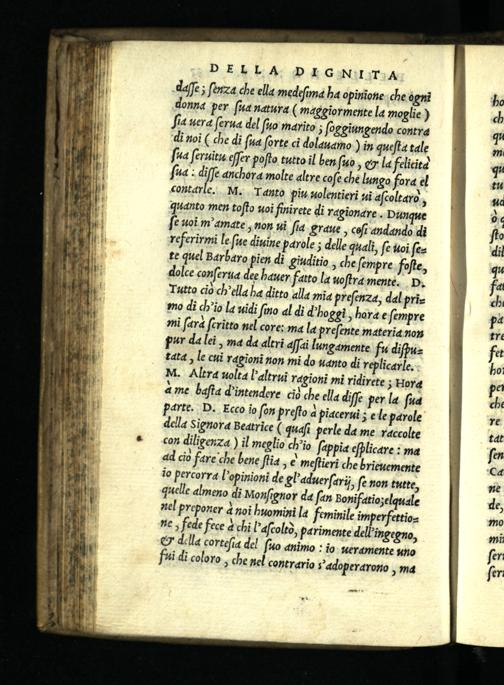 DELLA DIGNITA
dasse; senza che ella medesima ha opinione che ogni
donna per sua natura (maggiormente la moglie)
sia uera serua del suo marito; soggiungendo contra
di noi (che di sua sorte ci dolauamo) in questa tale
sua seruitu esser posto tutto il ben suo, & la felicità
sua: disse anchora molte altre cose che lungo fora el
contarle. M. Tanto piu uolentieri ui ascoltarò,
quanto men tosto uoi finirete di ragionare. Dunque
se uoi m'amate, non ui sia graue, così andando di
referirmi le sue diuine parole; delle quali, se uoi se-
te quel Barbaro pien di giuditio, che sempre foste,
dolce conserua dee hauer fatto la uostra mente. D.
Tutto ciò ch'ella ha ditto alla mia presenza, dal pri-
mo di ch'io la uidi sino al di d'hoggi, hora e sempre
mi sarà scritto nel core: ma la presente materia non
pur da lei, ma da altri assai lungamente fu dispu-
tata, le cui ragioni non mi do uanto di replicarle.
M. Altra uolta l'altrui ragioni mi ridirete; Hora
à me basta d'intendere ciò che ella disse per la sua
parte. D. Ecco io son presto à piacerui; e le parole
della Signora Beatrice (quasi perle da me raccolte
con diligenza) il meglio ch'io sappia esplicare: ma
ad ciò fare che bene stia, è mestieri che brieuemente
io percorra l'opinioni de gl'aduersarij, se non tutte,
quelle almeno di Monsignor da san Bonifatio; elquale
nel preponer à noi huomini la feminile imperfettio-
ne, fede fece à chi l'ascoltò, parimente dell'ingegno,
& della cortesia del suo animo: io ueramente uno
fui di coloro, che nel contrario s'adoperarono, ma